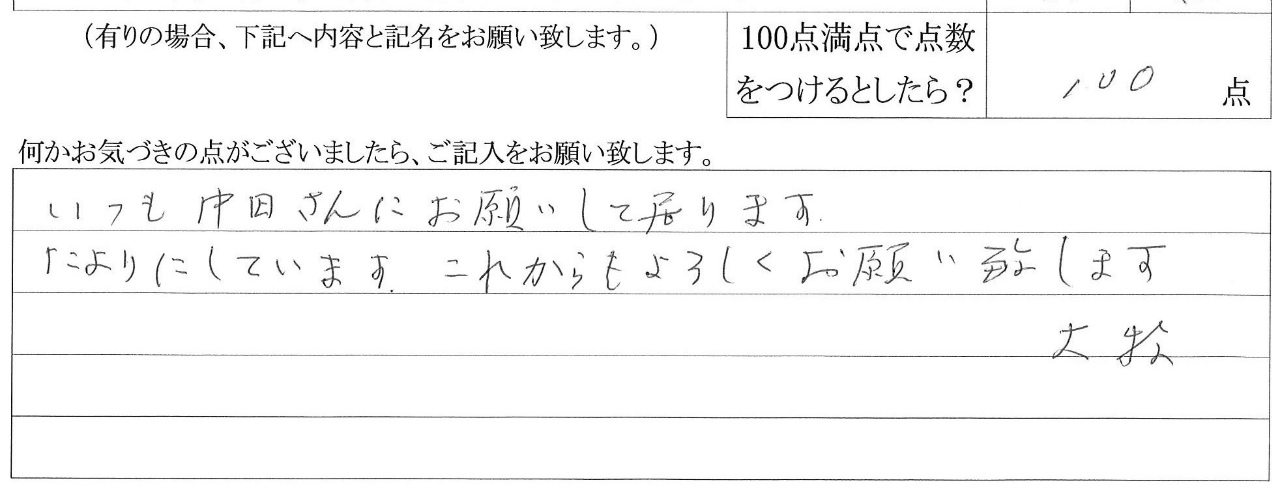 (有りの場合、下記へ内容と記名をお願い致します。)
100点満点で点数
をつけるとしたら？
100 点
何かお気づきの点がございましたら、ご記入をお願い致します。
いつも中田さんにお願いして居ります.
たよりにしています. これからもよろしくお願い致します
大牧